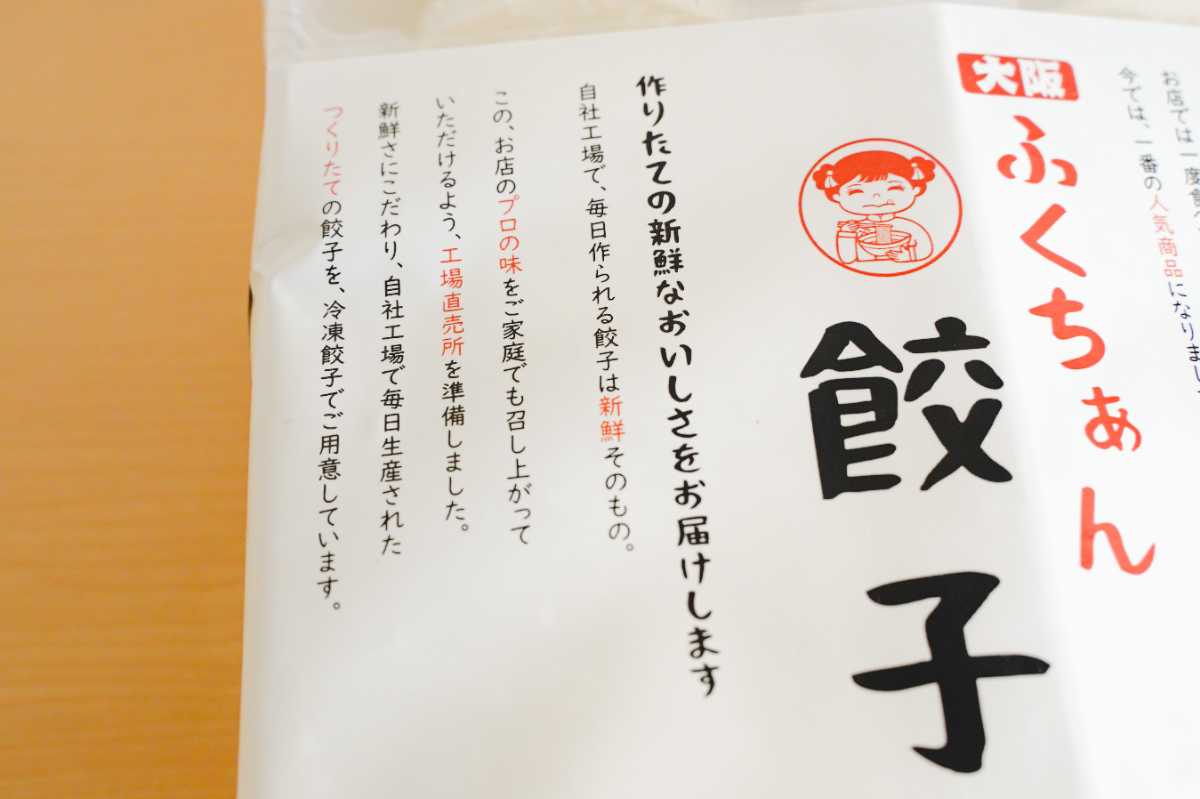 お店では一度
今では、一番の人気商品になりまし
大阪
ふくちぁん
餃子
作りたての新鮮なおいしさをお届けします
自社工場で、毎日作られる餃子は新鮮そのもの。
この、お店のプロの味をご家庭でも召し上がって
いただけるよう、工場直売所を準備しました。
新鮮さにこだわり、自社工場で毎日生産された
つくりたての餃子を、冷凍餃子でご用意しています。